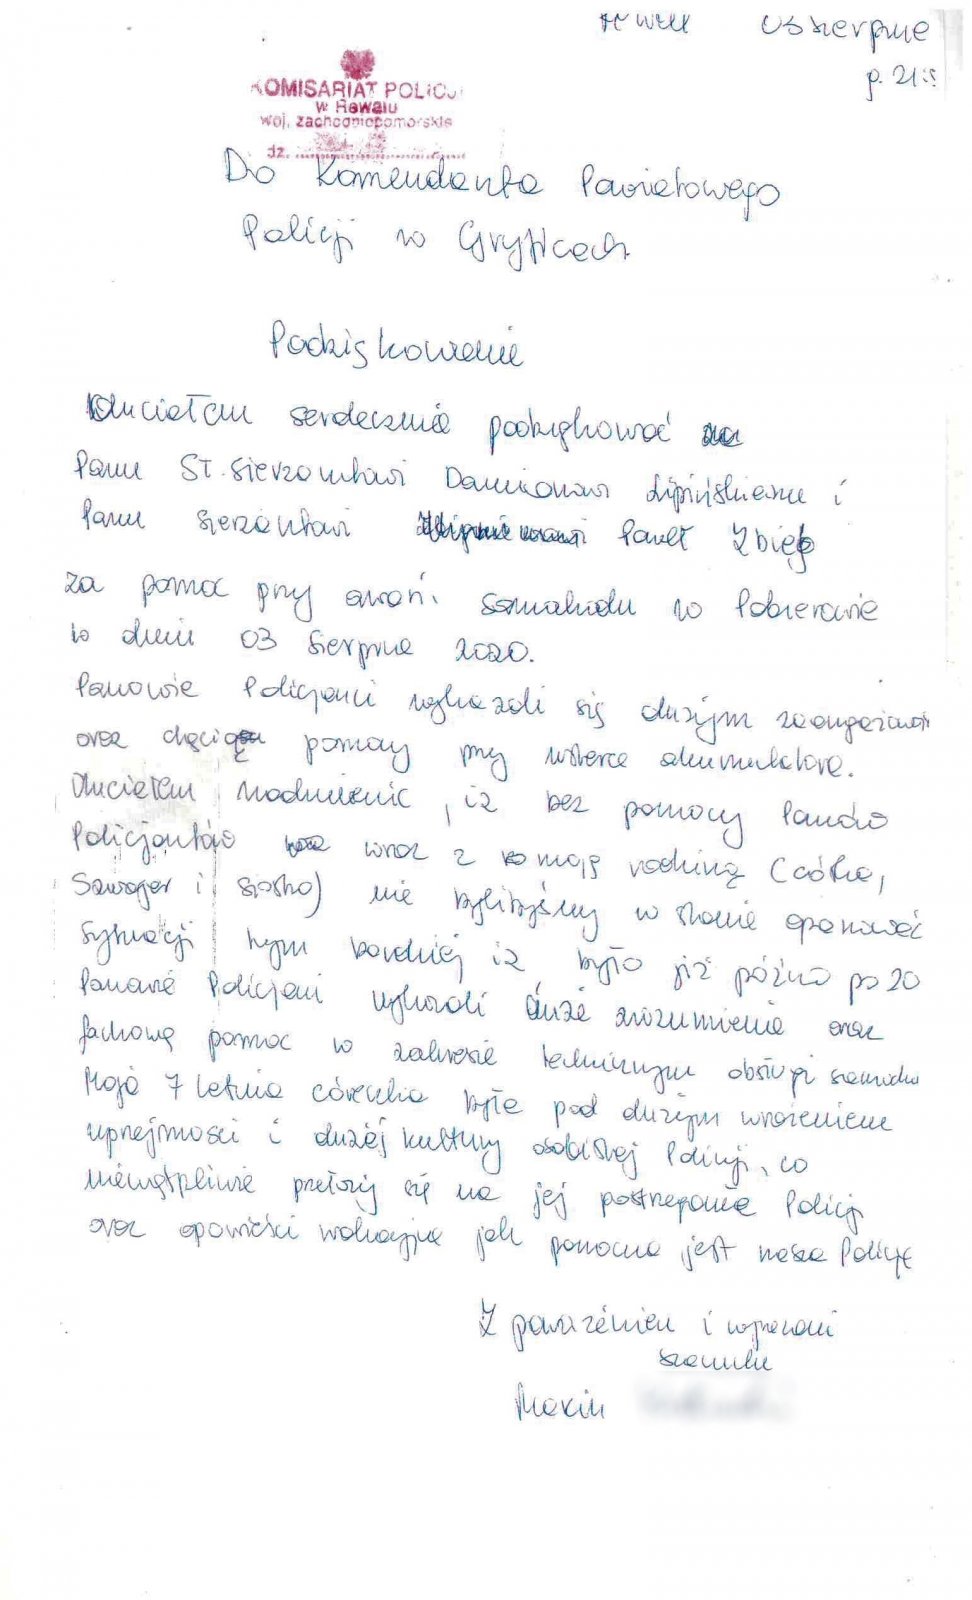 03 sierpnia
g. 21:15
KOMISARIAT POLICJI
w Rewalu
woj. zachodniopomorskie
dz.
Do Komendanta Powiatowego
Policji w Gryficach
Podziękowanie
Chciałam serdecznie podziękować
Panu St. Sierżantowi Damianowi Lipińskiemu i
Panu sierżantowi Paweł Zbieg
za pomoc przy awarii samochodu w Pobierowie
w dniu 03 sierpnia 2020.
Panowie Policjanci wykazali się dużym zaangażowan
oraz chęcią pomocy przy usterce akumulatora.
Chciałam nadmienić, iż bez pomocy Panów
Policjantów wraz z moją rodziną (córka,
Szwagier i siostra) nie bylibyśmy w stanie opanować
sytuacji tym bardziej iż było już późno po 20
Panowie Policjanci wykazali duże zrozumienie oraz
fachową pomoc w zakresie technicznym obsługi samochodu
Moja 7 letnia córeczka była pod dużym wrażeniem
uprzejmości i dużej kultury osobistej Policji, co
niewątpliwie przełoży się na jej postrzeganie Policji
oraz opowieści wakacyjne jak pomocna jest nasza Policja
Z poważaniem i wyrazami
szacunku